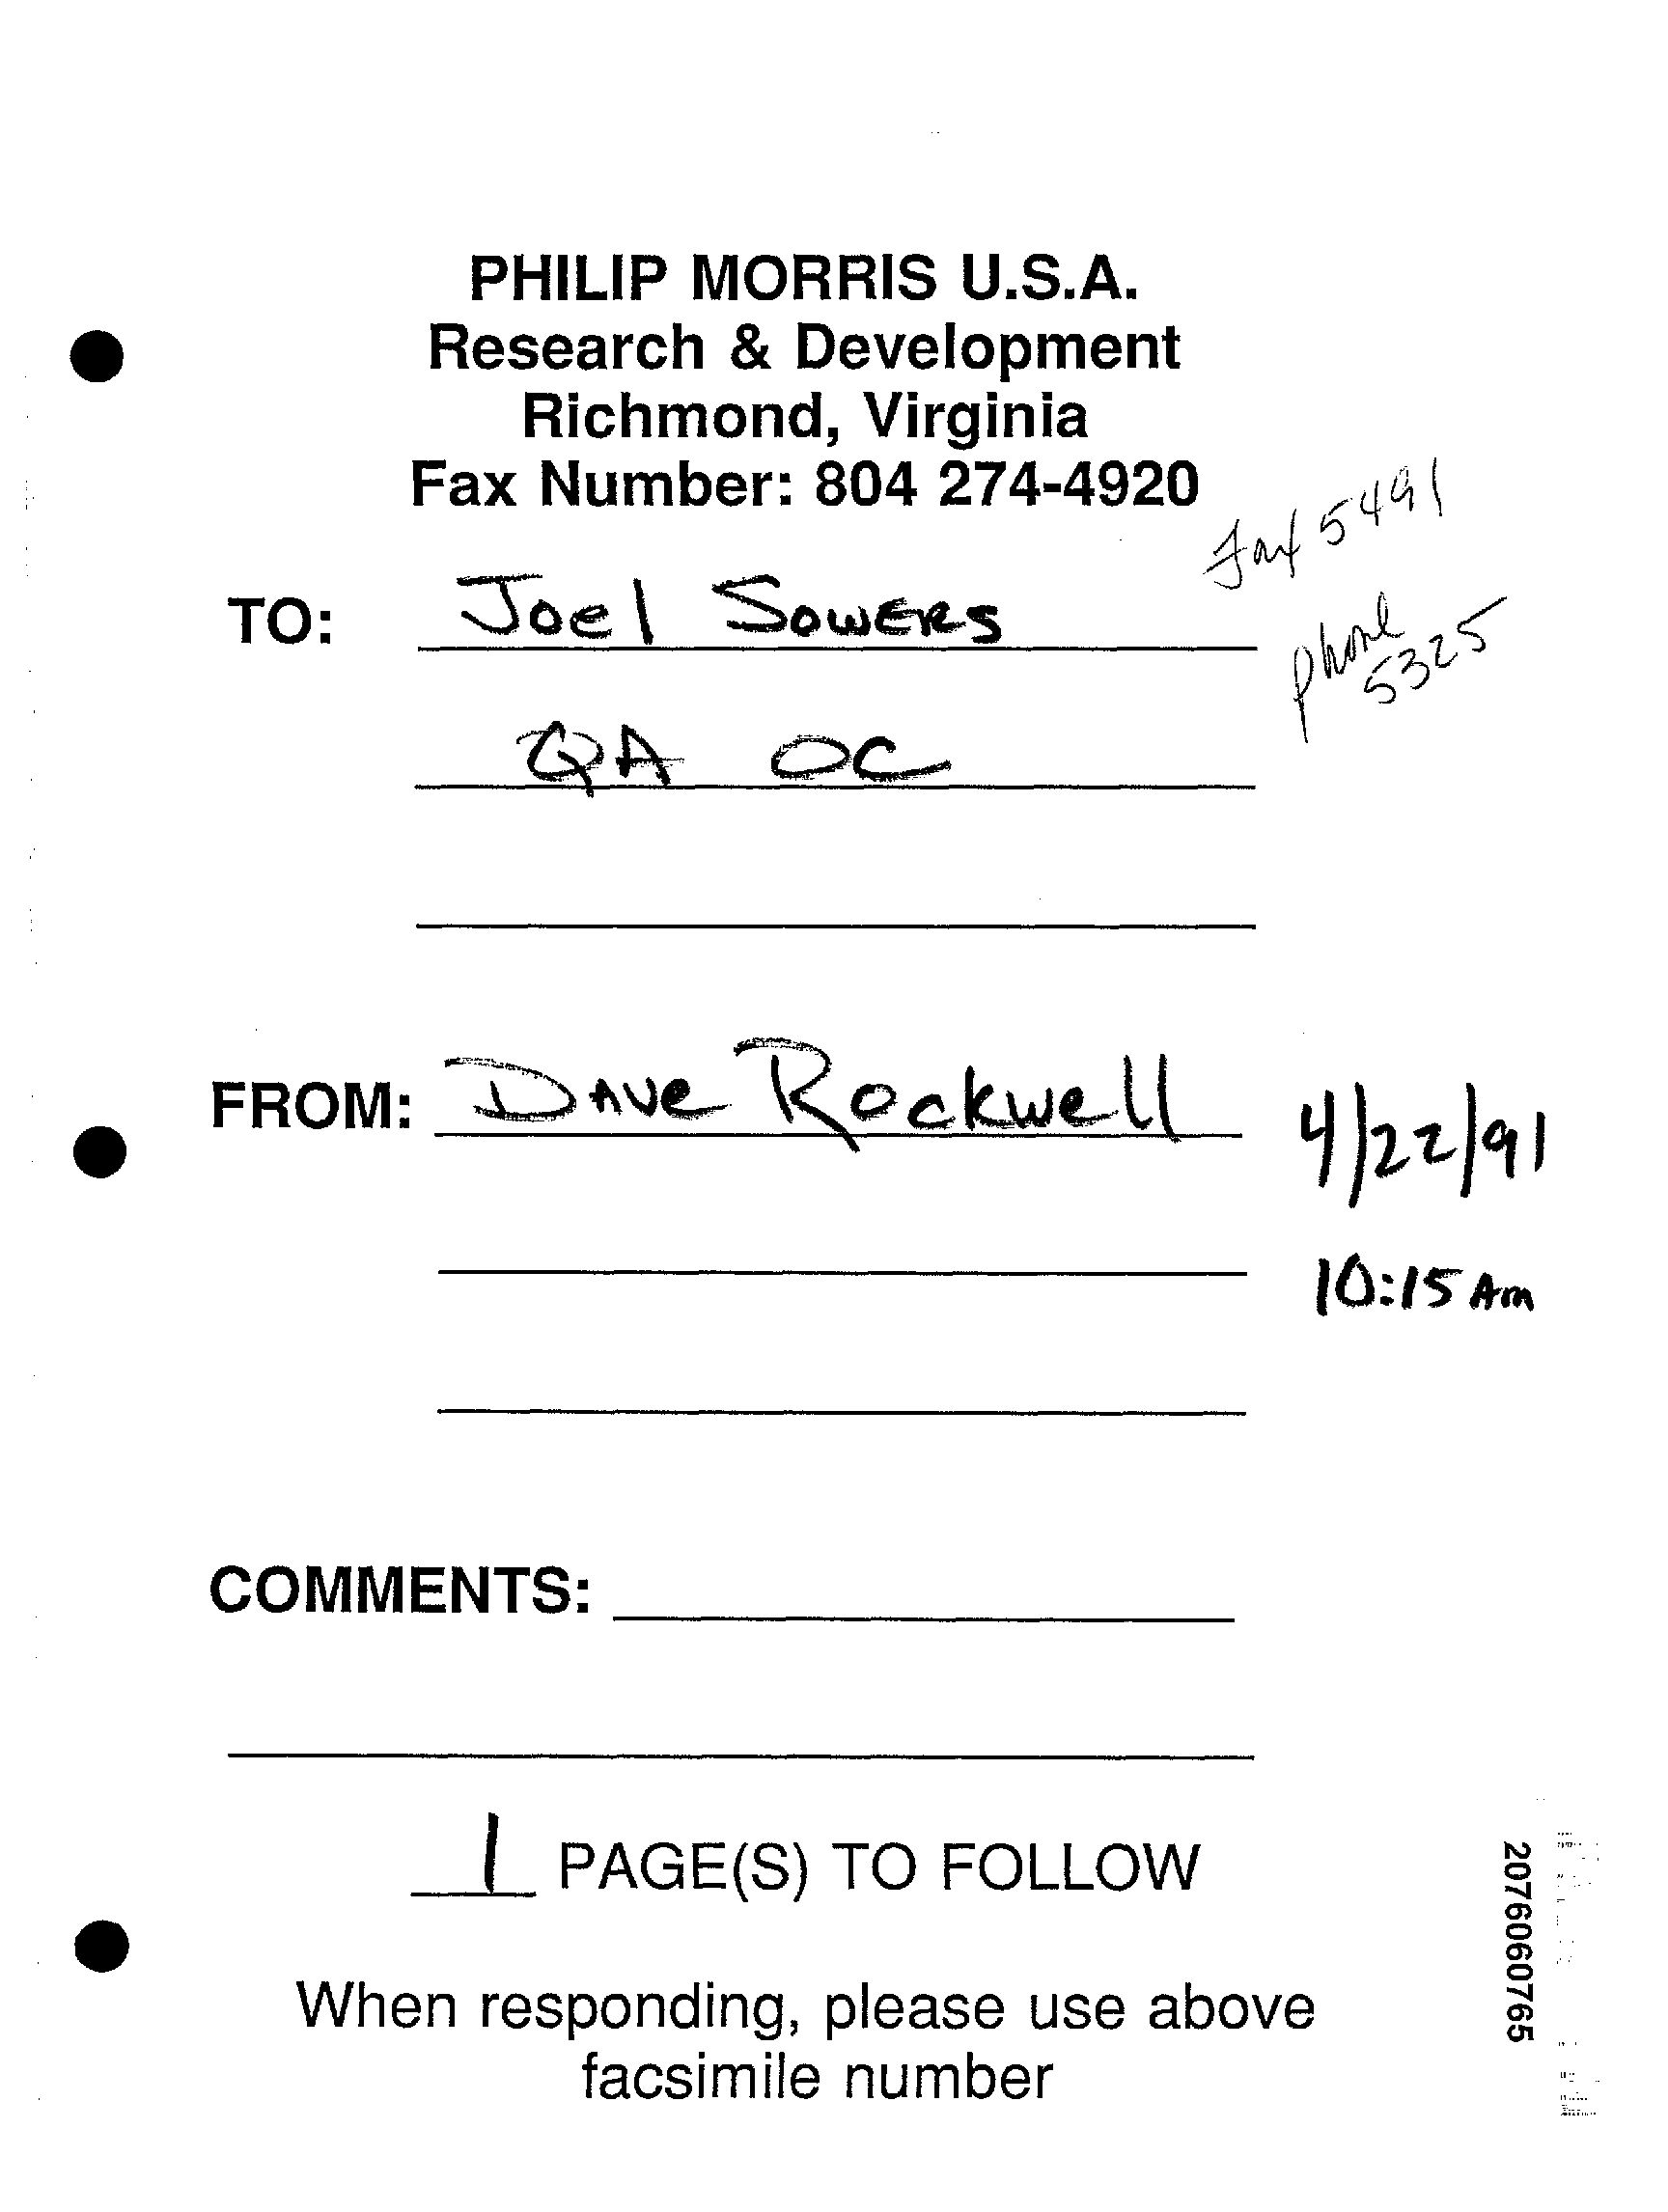 PHILIP MORRIS U.S.A.
Research & Development
Richmond, Virginia
Fax Number: 804 274-4920
Fax 5491
TO: Joel Sowers
phone
5325
QA OC
FROM: Dave Rockwell
4/22/91
10:15 Am
COMMENTS:
1 PAGE(S) TO FOLLOW
When responding, please use above
facsimile number
2076060765